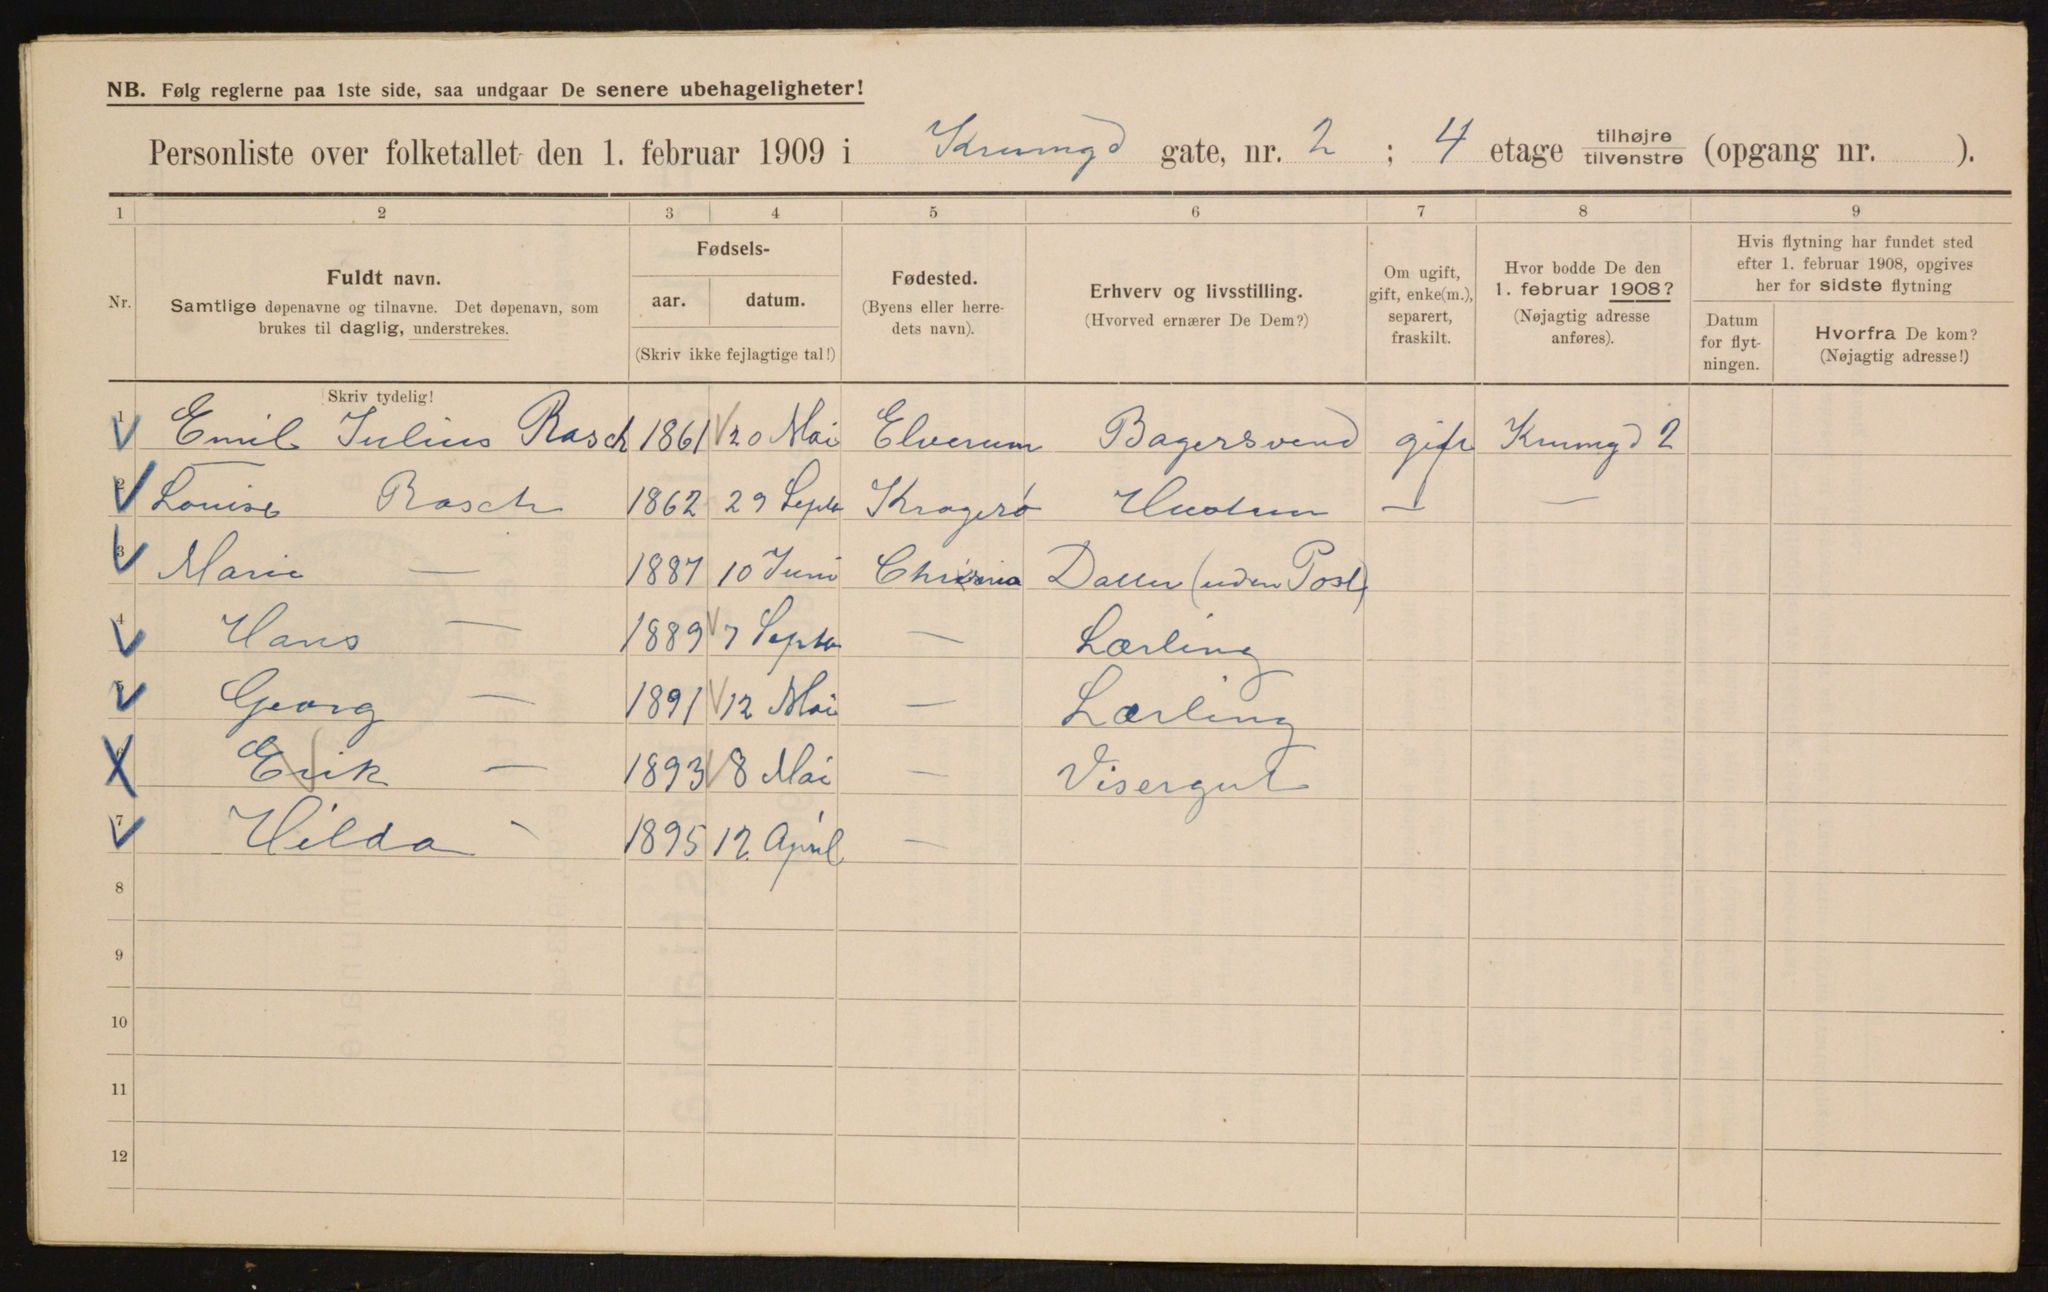 NB. Følg reglerne paa 1ste side, saa undgaar De senere ubehageligheter!
Personliste over folketallet den 1. februar 1909 i Krumgd gate, nr. 2 ; 4 etage tilhøjre tilvenstre (opgang nr. ).
1 2 3 4 5 6 7 8 9
Nr.
Fuldt navn.
Samtlige døpenavne og tilnavne. Det døpenavn, som
brukes til daglig, understrekes.
Fødsels-
aar. datum.
(Skriv ikke fejlagtige tal!)
Fødested.
(Byens eller herre-
dets navn).
Erhverv og livsstilling.
(Hvorved ernærer De Dem?)
Om ugift,
gift, enke(m.),
separert,
fraskilt.
Hvor bodde De den
1. februar 1908?
(Nøjagtig adresse
anføres).
Hvis flytning har fundet sted
efter 1. februar 1908, opgives
her for sidste flytning
Datum
for flyt-
ningen.
Hvorfra De kom?
(Nøjagtig adresse!)
Skriv tydelig!
1 Emil Julius Rasch 1861 20 Mai Elverum Bagersvend gift Krumgd 2
2 Louise Rasch 1862 29 Septr Kragerø Hustru — —
3 Marie — 1887 10 Juni Chrania Datter (uden Post)
4 Hans — 1889 7 Septr — Lærling
5 Georg — 1891 12 Mai — Lærling
6 Erik — 1893 8 Mai — Visergut
7 Hilda — 1895 12 April —
8
9
10
11
12